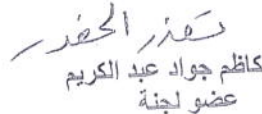 تعذر الحضور
كاظم جواد عبد الكريم
عضو لجنة